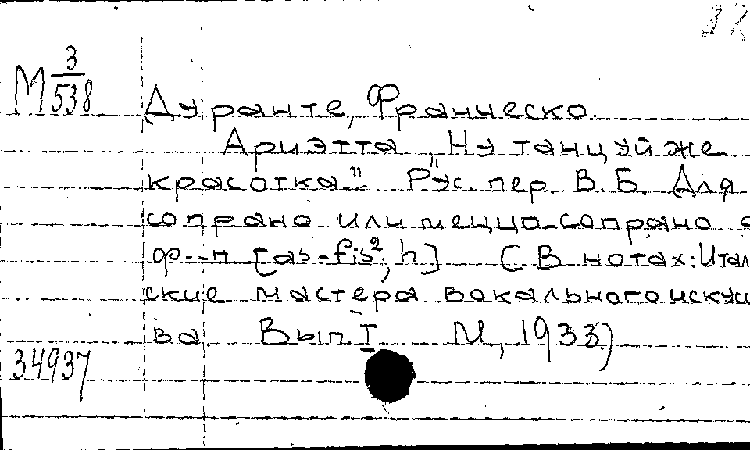 М 3/538
Дуранте, Франческо.
Ариэтта „Ну танцуй же
красотка" Рус. пер. В. Б. Для
сопрано или меццо-сопрано с
ф-п [as-fis², h] (В нотах: Итал
ские мастера вокального искус
ва Вып. I М, 1933)
34937